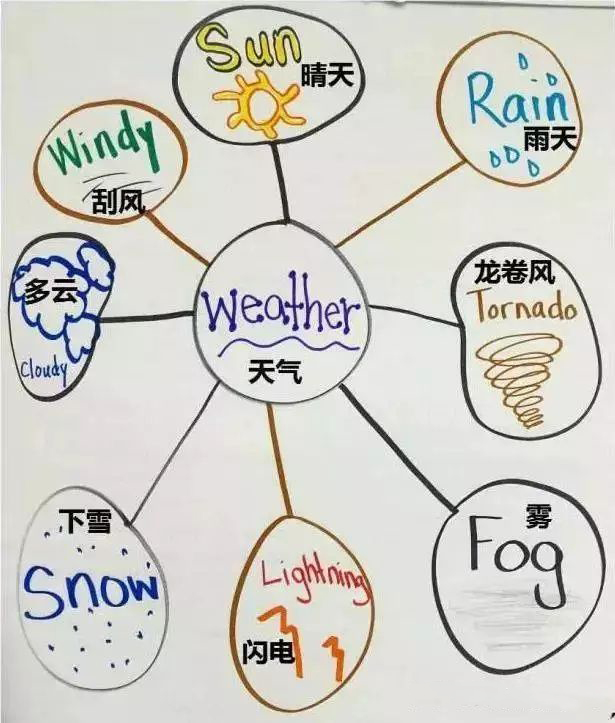 Sun
晴天
Rain
雨天
Windy
刮风
多云
Cloudy
Weather
天气
龙卷风
Tornado
下雪
Snow
Lightning
闪电
雾
Fog